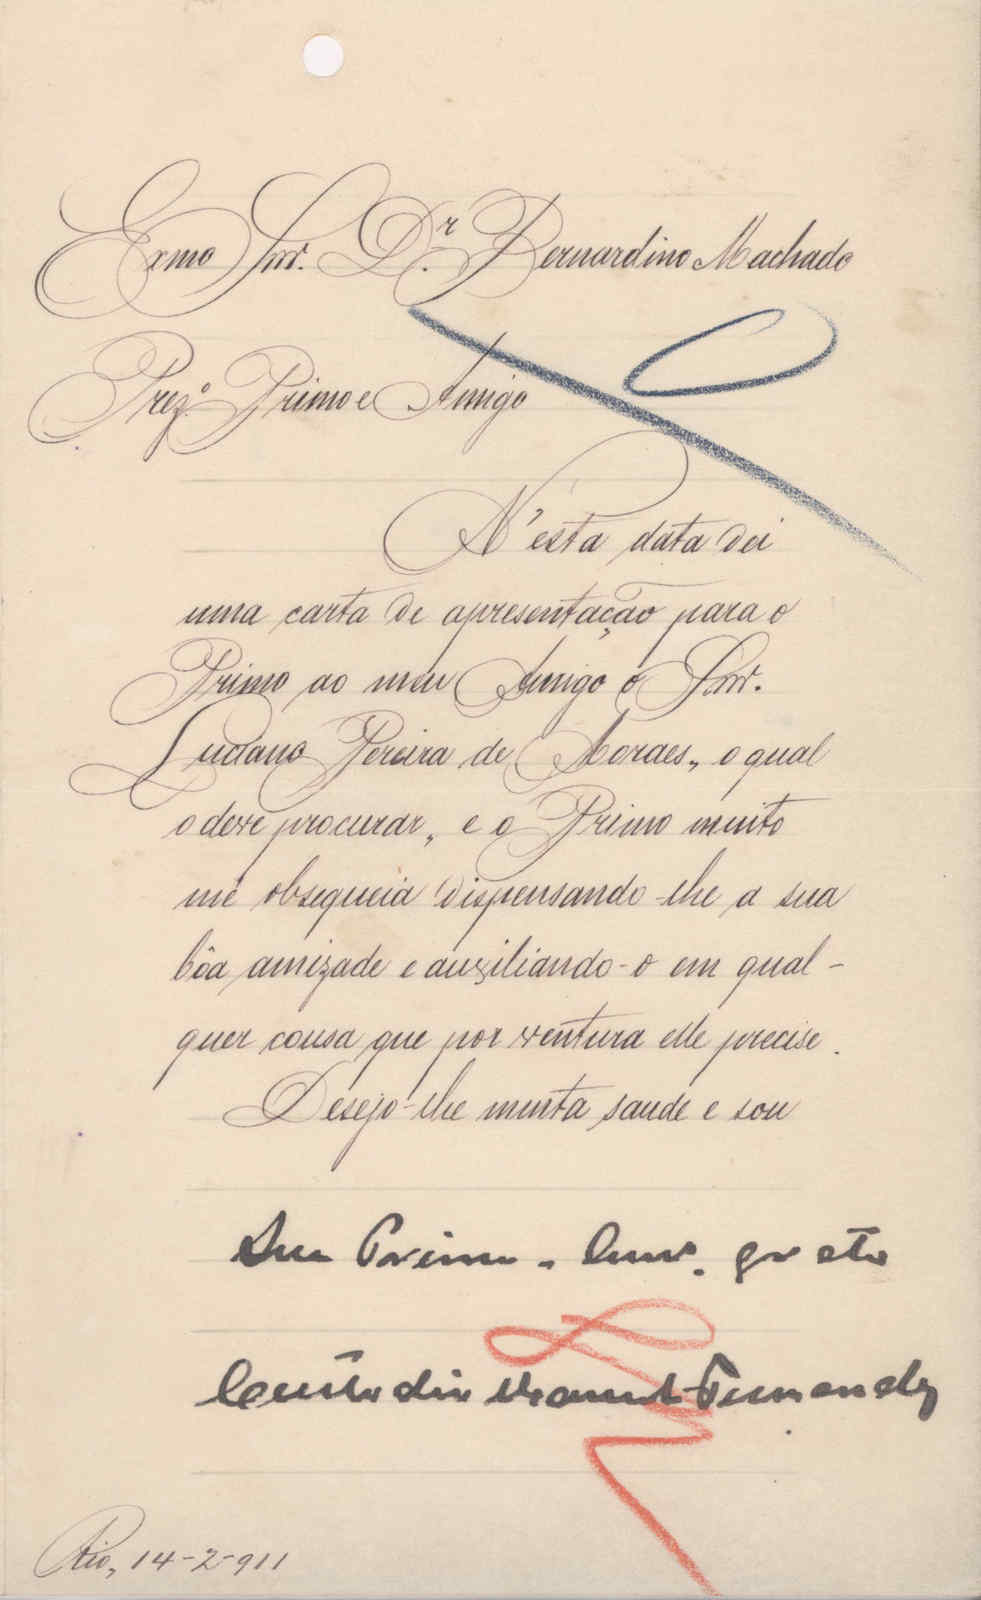 Exmo Snr. Dr. Bernardino Machado
Prezo. Primo e Amigo
N'esta data dei
uma carta de apresentação para o
Primo ao meu Amigo o Snr.
Luciano Pereira de Moraes, o qual
o deve procurar, e o Primo muito
me obsequeia dispensando-lhe a sua
bôa amizade e auxiliando-o em qual-
quer cousa que por ventura elle precise.
Desejo-lhe muita saude e sou
Seu Primo grato
Custodio Manuel Fernandes
Rio, 14-2-911